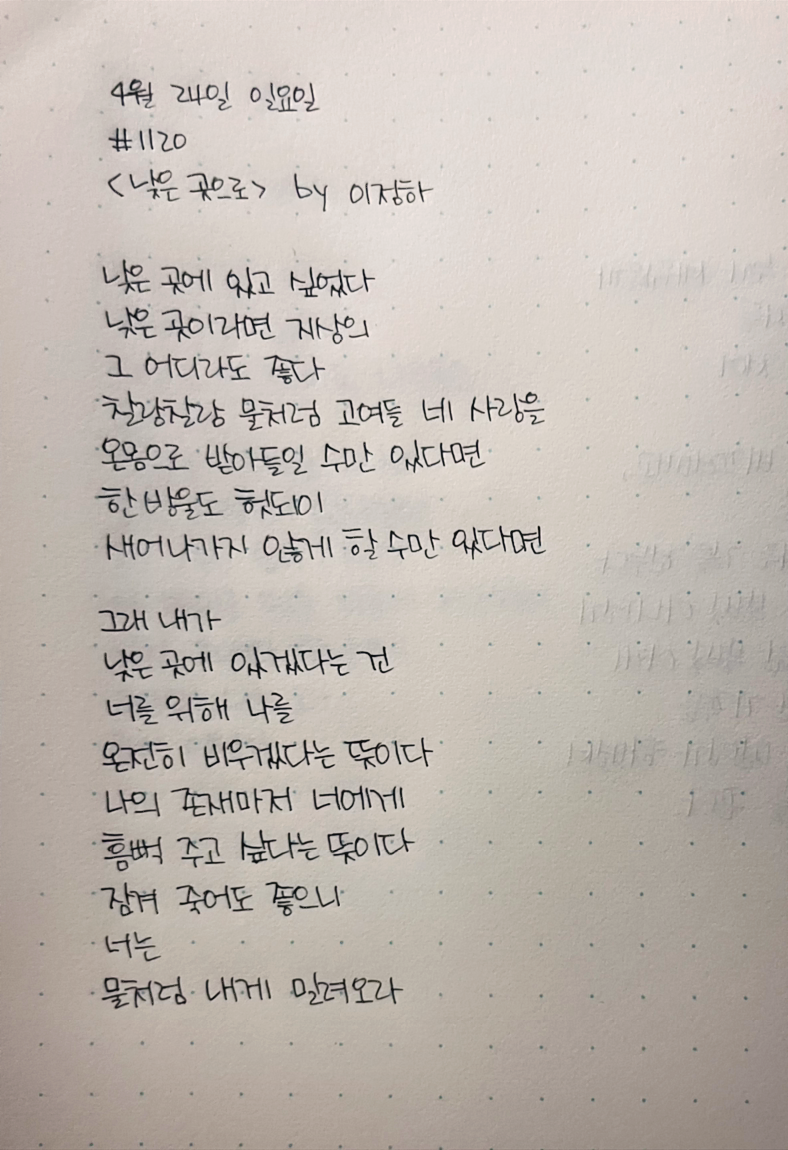 4월 24일 일요일
#1120
<낮은 곳으로> by 이정하
낮은 곳에 있고 싶었다
낮은 곳이라면 지상의
그 어디라도 좋다
찰랑찰랑 물처럼 고여들 네 사랑을
온몸으로 받아들일 수만 있다면
한 방울도 헛되이
새어나가지 않게 할 수만 있다면
그래 내가
낮은 곳에 있겠다는 건
너를 위해 나를
온전히 비우겠다는 뜻이다
나의 존재마저 너에게
흠뻑 주고 싶다는 뜻이다
잠겨 죽어도 좋으니
너는
물처럼 내게 밀려오라